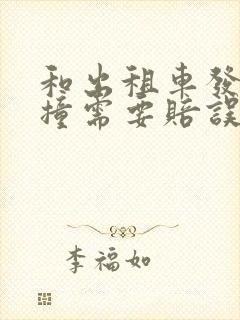 和出租車發
撞需要賠誤
李福如